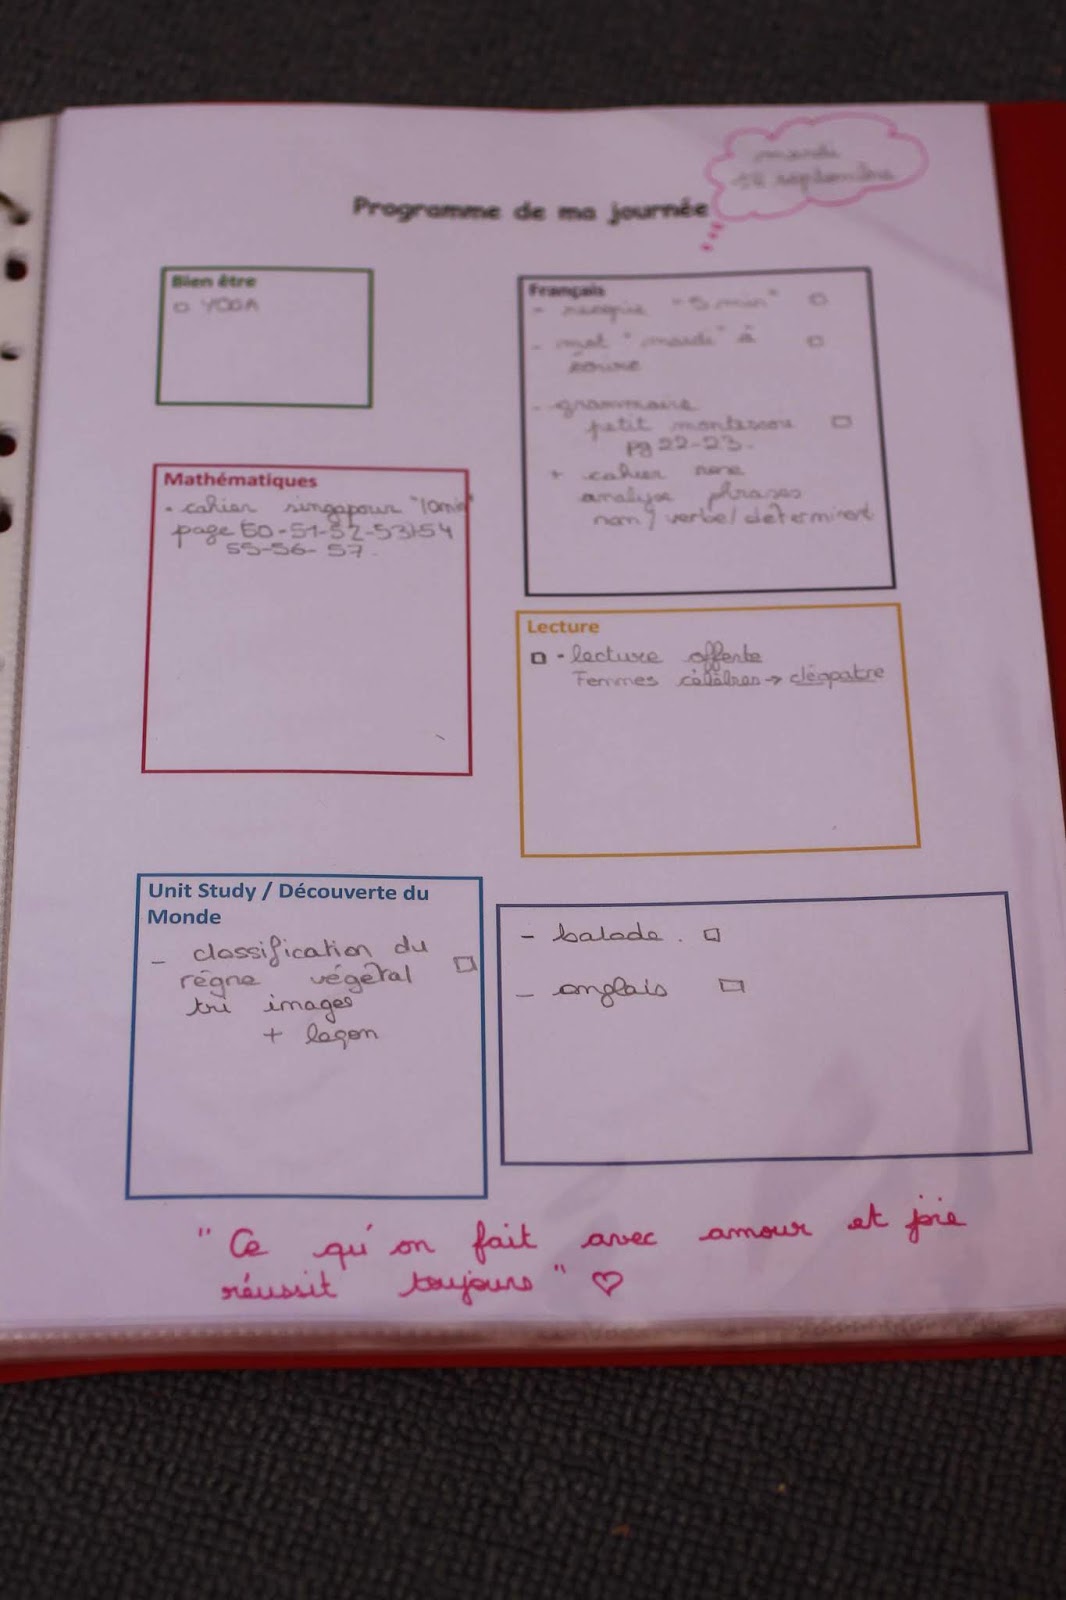 mardi
septembre
Programme de ma journée
Bien être
YOGA
Français
- "5 min"
- mot "mardi" à
- grammaire
petit montessori
pg 22-23.
+ cahier
analyse phrases
nom / verbe / déterminant
Mathématiques
- cahier singapour "10min"
page 50-51-52-53-54
55-56-57.
Lecture
- lecture offerte
Femmes célèbres → cléopatre
Unit Study / Découverte du
Monde
- classification du
règne végétal
tri images
+ leçon
- balade.
- anglais
"Ce qu'on fait avec amour et joie
réussit toujours" ♡